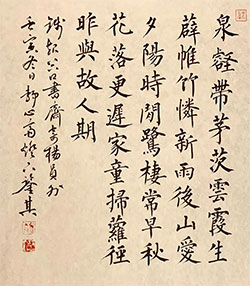 泉壑帶茅茨雲霞生
薜帷竹憐新雨後山愛
夕陽時閒鷺棲常早秋
花落更遲家童掃蘿徑
昨與故人期
錢起谷口書齋寄楊員外
壬寅冬日靜心